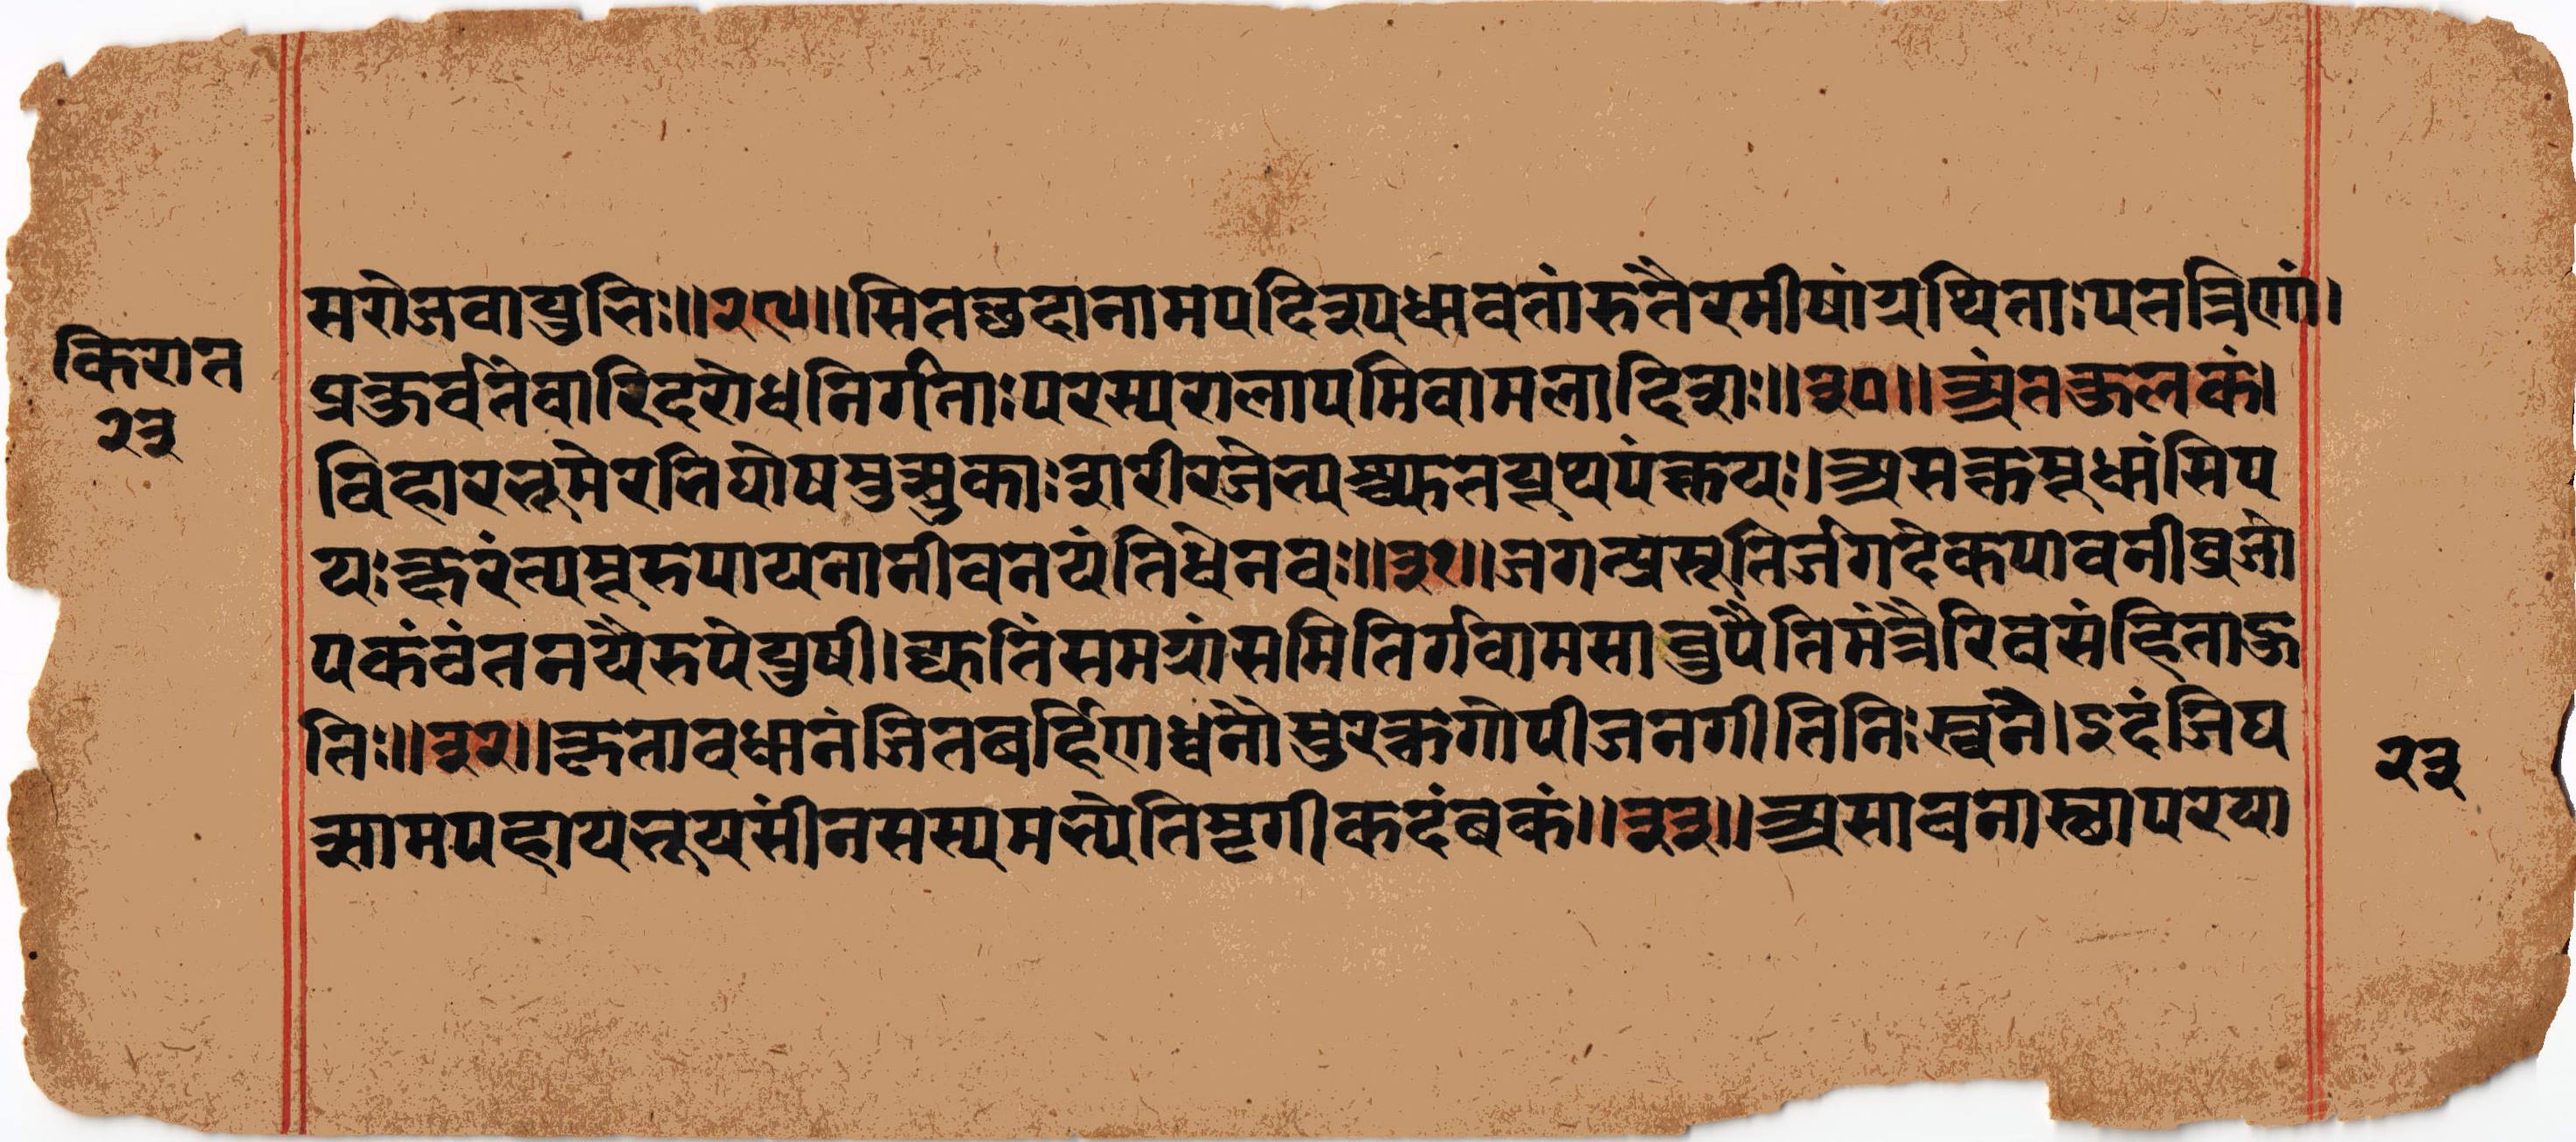 सरोजवायुभिः॥२९॥सितछदानामपदिश्यधावतांरुतैरमीषांग्रथिताःपतत्रिणां।
प्रकुर्वतेवारिदरोधनिर्गताःपरस्परालापमिवामलादिशः॥३०॥अंतकुलकं।
विहारभूमेरभिघोषमुत्सुकाःशरीरजेभ्यश्च्युतयूथपंक्तयः।असक्तमूधांसिप
यःक्षरंत्यमूरुपायनानीवनयंतिधेनवः॥३१॥जगत्प्रसूतिर्जगदेकपावनीव्रजो
पकंठंतनयैरुपेयुषी।द्युतिंसमग्रांसमितिर्गवामसावुपैतिमंत्रैरिवसंहिताहु
तिः॥३२॥कृतावधानंजितबर्हिणध्वनौसुरक्तगोपीजनगीतिनिःस्वने।इदंजिघ
त्सामपहायभूयसींनसस्यमभ्येतिमृगीकदंबकं॥३३॥असावनास्थापरया
किरात
२३
२३